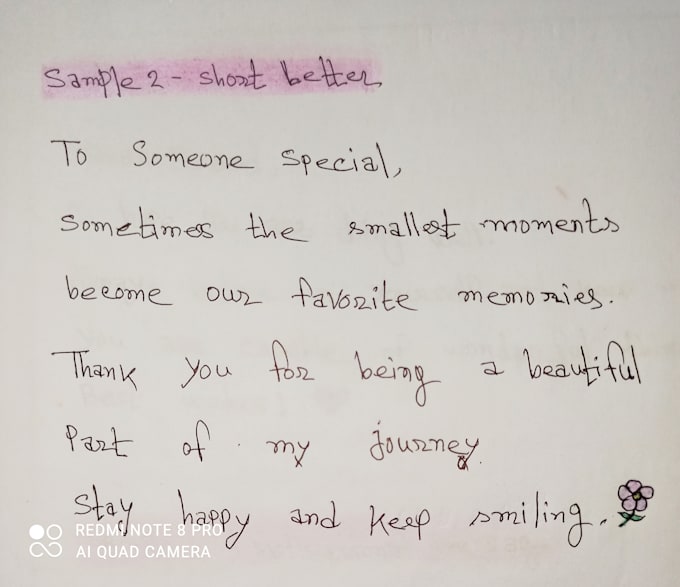 Sample 2 - short better
To Someone special,
sometimes the smallest moments
become our favorite memories.
Thank you for being a beautiful
Part of my journey.
Stay happy and keep smiling.
REDMI NOTE 8 PRO
AI QUAD CAMERA